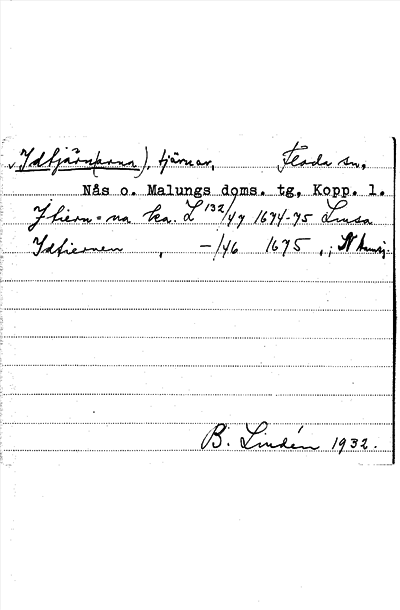 Idtjärn(arna), tjärnar, Floda sn,
Nås o. Malungs doms. tg, Kopp. l.
Jtiern=na ka. L 132/47 1674-75 Lmsa
Idtiernen , -/46 1675 , ; N
B. Lindén 1932.